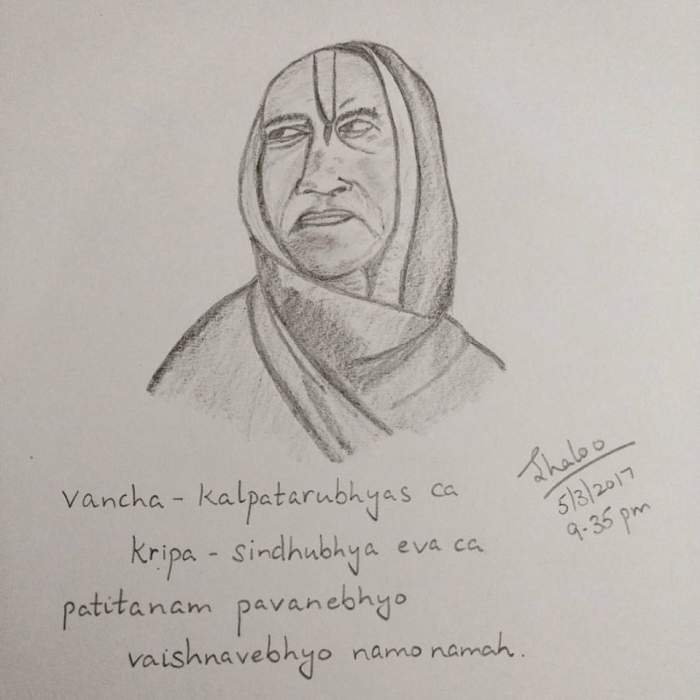 Jhaloo
5/3/2017
9.35 pm
vancha - kalpatarubhyas ca
kripa - sindhubhya eva ca
patitanam pavanebhyo
vaishnavebhyo namo namah.